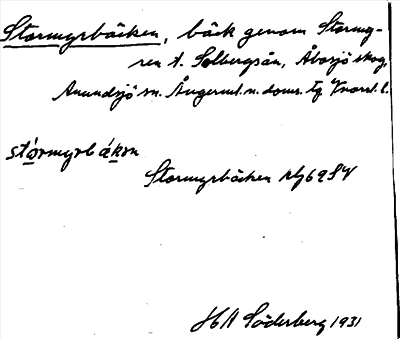 Stormyrbäcken, bäck genom Stormy-
ren t. Solbergsån, Åbosjö skog,
Anundsjö sn. Ångerml. n. doms. tg Vnorrl. l.
stórmyrbäkən
Stormyrbäcken 69 SV
HA Söderberg 1931